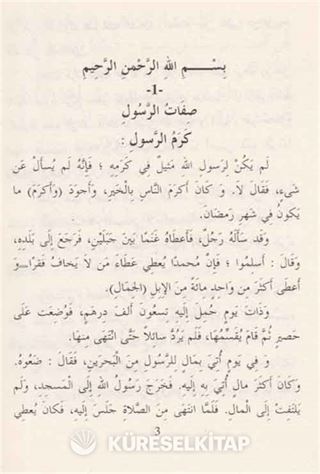 بِسْـــمِ اللهِ الرَّحْمنِ الرَّحِيمِ
-1-
صِفَاتُ الرَّسُولِ
كَرَمُ الرَّسُولِ :
لَم يَكُنْ لِرَسولِ اللهِ مَثِيلٌ في كَرَمِهِ ؛ فَإنَّهُ لَم يُسألْ عَن
شَيءٍ، فَقَالَ لاَ. وَ كَانَ أكرَمَ النَّاسِ بِالْخَيرِ، وأجوَدَ (وَأكرَمَ) ما
يَكونُ في شَهرِ رَمضَانَ.
وَقَد سَألَهُ رَجُلٌ، فَأعطَاهُ غَنَمًا بَينَ جَبَلَينِ، فَرَجَعَ إلى بَلَدِهِ،
وَقَالَ : أسلِموا ؛ فَإنَّ مُحمدًا يُعطِي عَطَاءَ مَن لاَ يَخافُ فَقرًا-وَ
أعطَى أكثَرَ مِن وَاحِدٍ مائَةً مِنَ الإبِلِ (الجِمَالِ).
وَذَاتَ يَومٍ حُمِلَ إلَيهِ تِسعُونَ ألفَ دِرهَمٍ، فَوُضِعَت عَلَى
حَصيرٍ ثُمَّ قَامَ يُقَسِّمُهَا، فَلَم يَرُدَّ سائلاً حَتَّى انْتَهَى مِنهَا.
وَ فِي يَومٍ أُتِيَ بِمَالٍ لِلرَّسُولِ مِنَ البَحرَينِ، فَقَالَ : ضَعُوهُ.
وَكَانَ أكثَرَ مالٍ أُتِيَ بِهِ إلَيهِ. فَخَرجَ رَسُولُ اللهِ إلَى المَسجدِ، وَلَم
يَلتَفِتْ إلَى المالِ. فَلَمَّا انتَهَى مِنَ الصَّلاَةِ جَلَسَ إلَيهِ، فَكَانَ يُعطِي
3
KÜRESELKİTAP